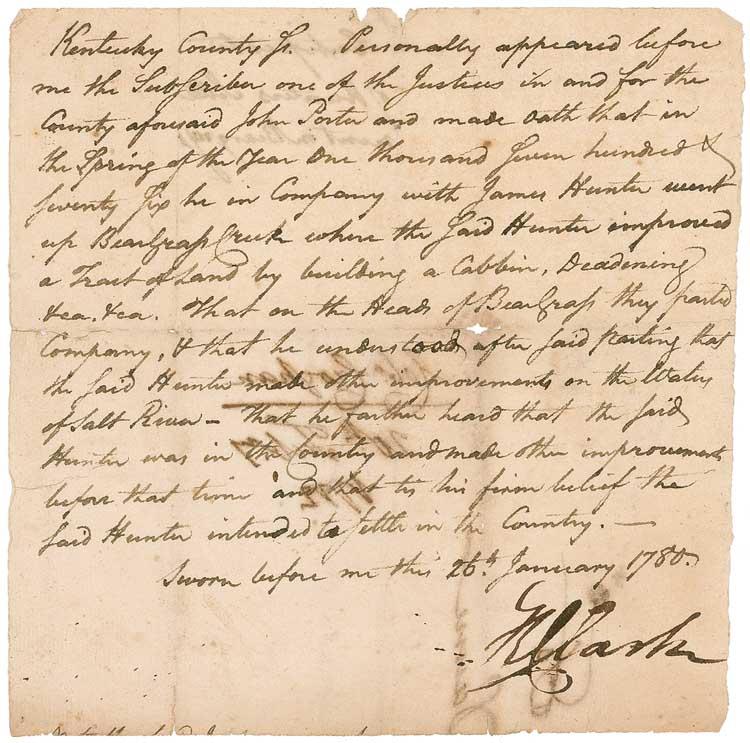 Kentucky County Ss. Personally appeared before
me the Subscriber one of the Justices in and for the
County aforesaid John Porter and made oath that in
the Spring of the Year One thousand Seven hundred &
Seventy Six he in Company with James Hunter went
up BearGrass Creek where the Said Hunter improved
a Tract of Land by building a Cabbin, Deadening
&ca. &ca. That on the Heads of BearGrass they parted
Company, & that he understood after said Parting that
the Said Hunter made other improvements on the Waters
of Salt River — That he farther heard that the Said
Hunter was in the Country and made other improvements
before that time and that tis his firm belief the
Said Hunter intended to settle in the Country. —
Sworn before me this 26th January 1780.
Clark